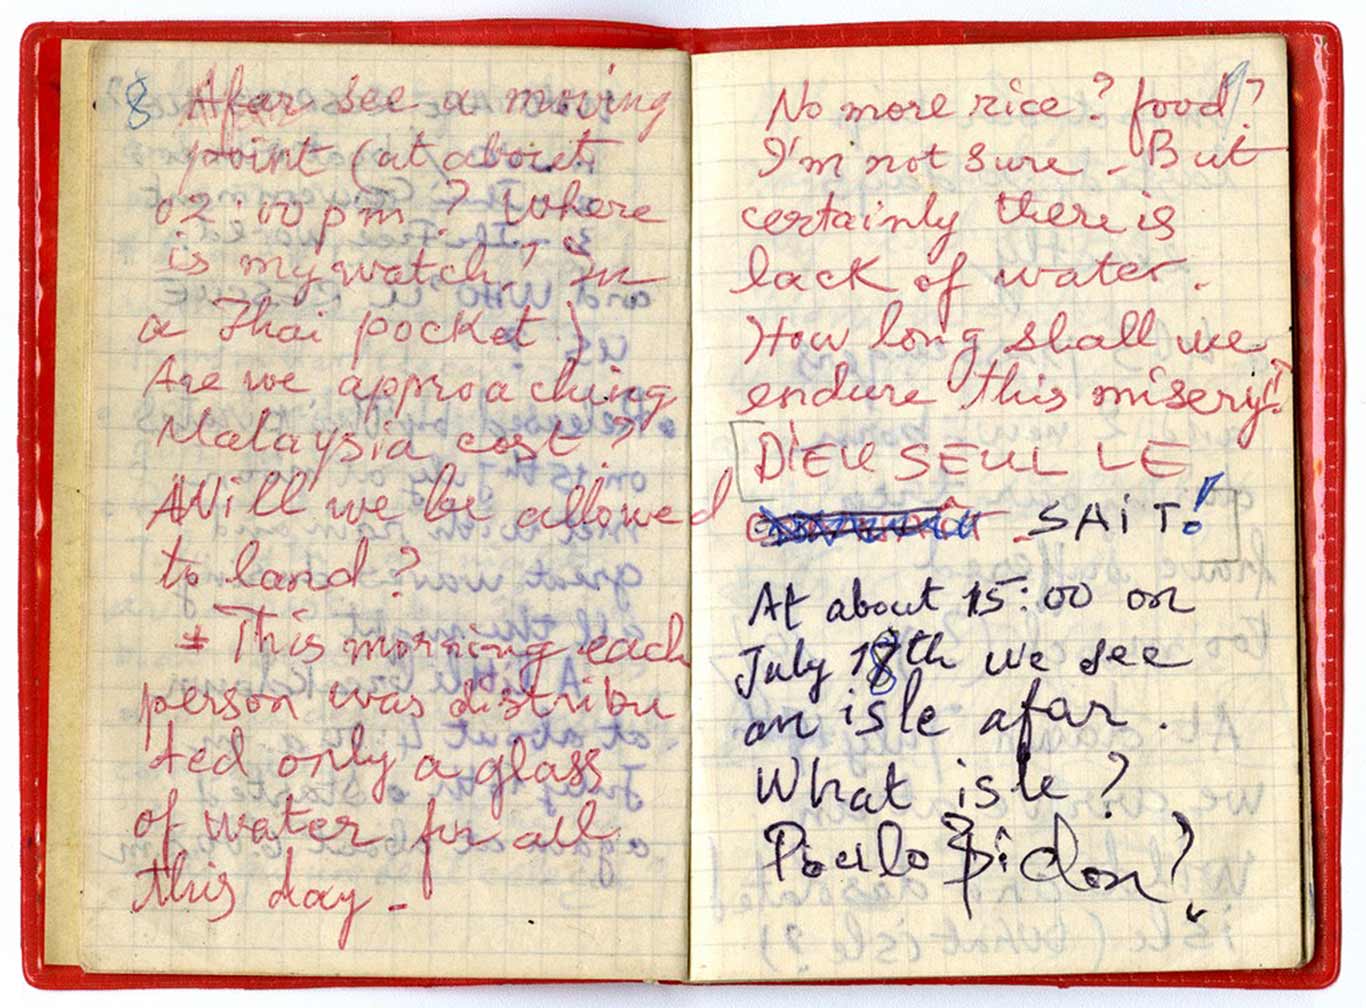 8 Afar see a moving
point (at about
02:00 pm ? Where
is my watch, ? in
a Thai pocket )
Are we approaching
Malaysia cost ?
Will we be allowed
to land ?
+ This morning each
person was distribu
ted only a glass
of water for all
this day -
No more rice ? food ?
I'm not sure - But
certainly there is
lack of water.
How long shall we
endure this misery ?
DIEU SEUL LE
SAIT !
At about 15:00 on
July 18th we see
an isle afar.
What isle ?
Poulo Bidon ?